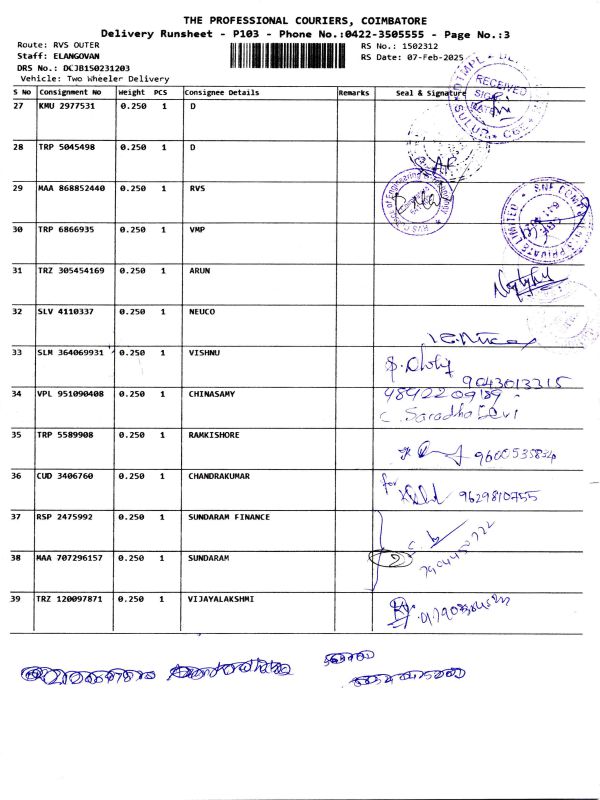 THE PROFESSIONAL COURIERS, COIMBATORE
Delivery Runsheet - P103 - Phone No.:0422-3505555 - Page No.:3
Route: RVS OUTER RS No.: 1502312
Staff: ELANGOVAN RS Date: 07-Feb-2025
DRS No.: DCJB150231203
Vehicle: Two Wheeler Delivery
S No Consignment No Weight PCS Consignee Details Remarks Seal & Signature
27 KMU 2977531 0.250 1 D
RECEIVED
SULUR
28 TRP 5045498 0.250 1 D
29 MAA 868852440 0.250 1 RVS
30 TRP 6866935 0.250 1 VMP
PRIVATE LIMITED
31 TRZ 305454169 0.250 1 ARUN
32 SLV 4110337 0.250 1 NEUCO
33 SLM 364069931 0.250 1 VISHNU
9043013315
34 VPL 951090408 0.250 1 CHINASAMY
C. Saradha Devi
35 TRP 5589908 0.250 1 RAMKISHORE
9600535834
36 CUD 3406760 0.250 1 CHANDRAKUMAR
for
9629810755
37 RSP 2475992 0.250 1 SUNDARAM FINANCE
38 MAA 707296157 0.250 1 SUNDARAM
2
39 TRZ 120097871 0.250 1 VIJAYALAKSHMI